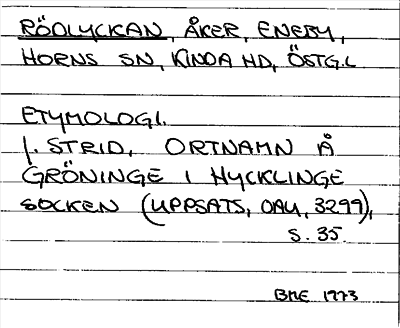 RÖDLYCKAN, ÅKER, ENEBY,
HORNS SN, KINDA HD, ÖSTG.L
ETYMOLOGI.
J. STRID, ORTNAMN Å
GRÖNINGE I HYCKLINGE
SOCKEN (UPPSATS, OAU, 3299),
S. 35.
BME 1973